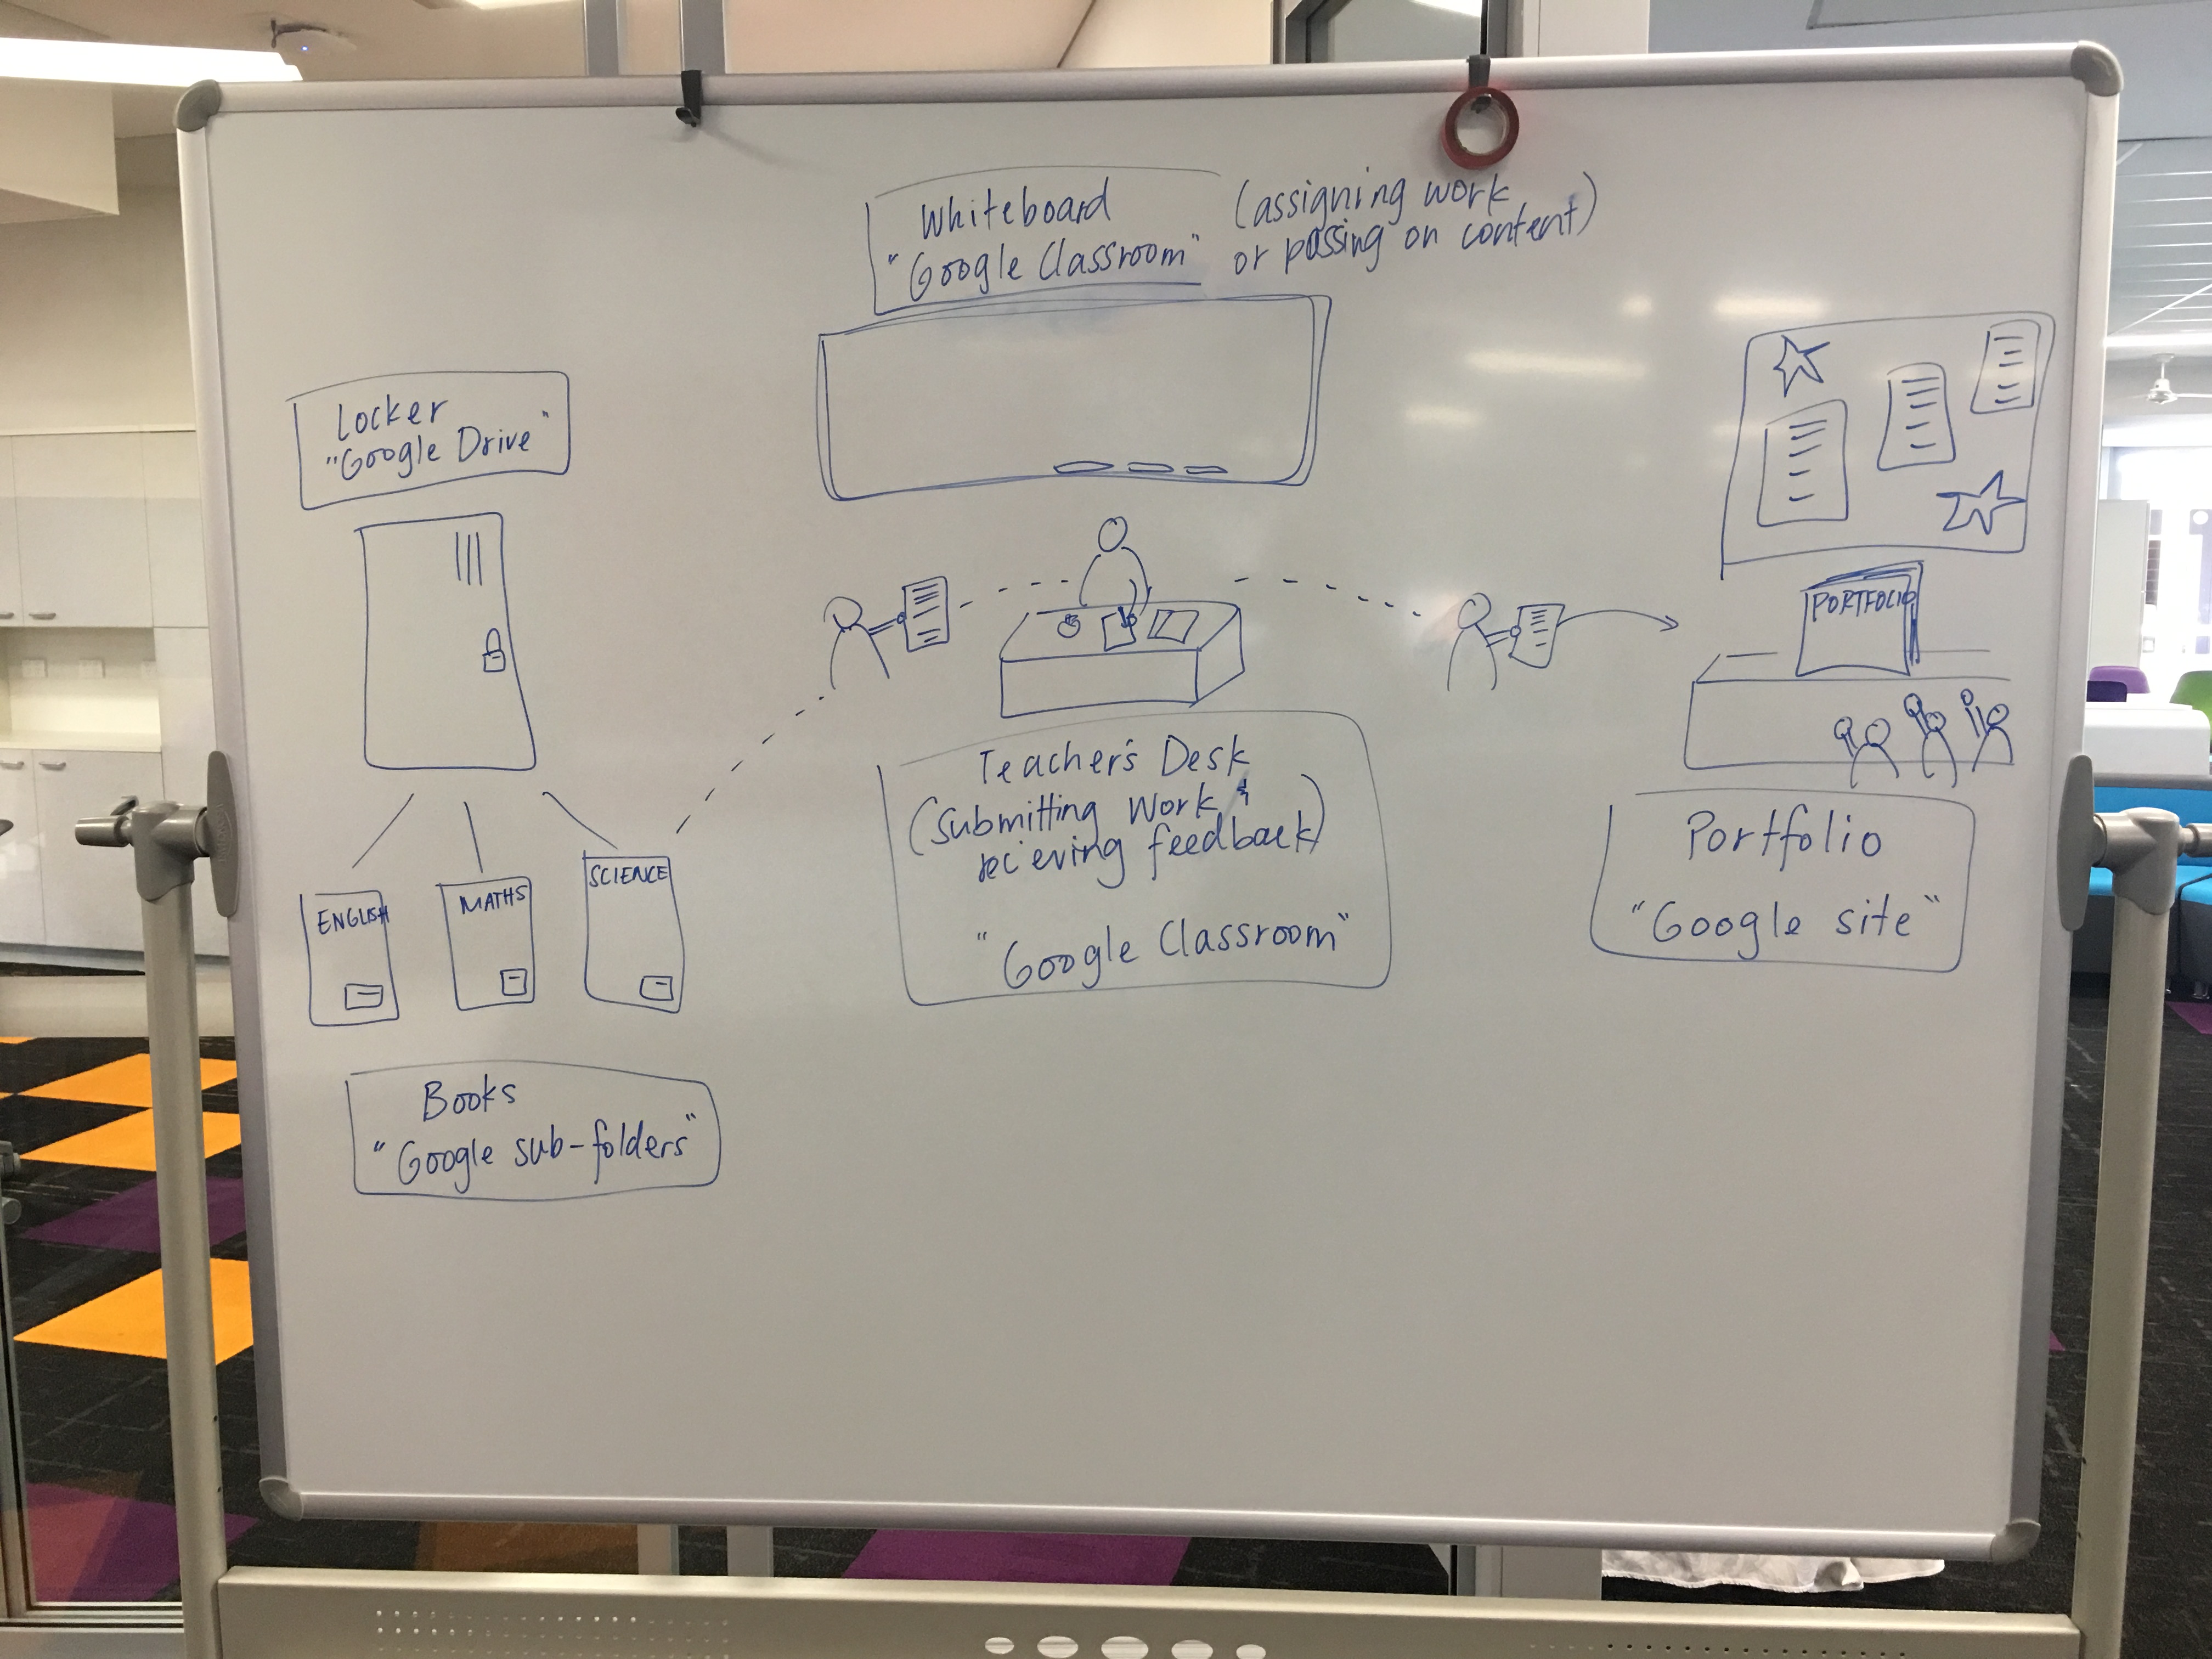 Whiteboard
"Google Classroom"
(assigning work
or passing on content)
Locker
"Google Drive"
ENGLISH
MATHS
SCIENCE
Books
"Google sub-folders"
Teacher's Desk
(Submitting Work &
recieving feedback)
"Google Classroom"
PORTFOLIO
Portfolio
"Google site"